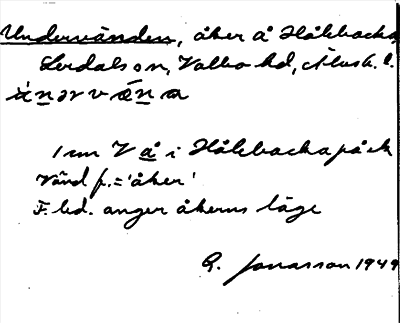 Undervänden, åker å Hålebacka,
Lerdals sn, Valbo hd, Älvsb. l.
1 m V å i Hålebacka på ek
Vänd f. = 'åker'
F. led. anger åkerns läge
G. Jonasson 1949